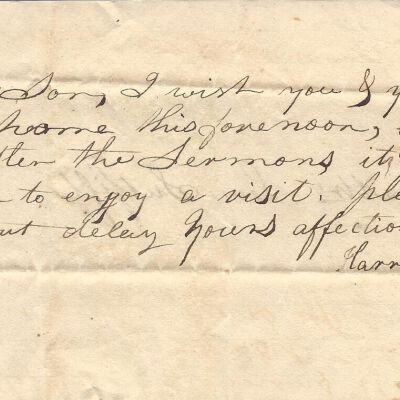 Son, I wish you & y
home this forenoon,
tter the Sermons it
to enjoy a visit. Ple
ut delay Yours affection
Harr